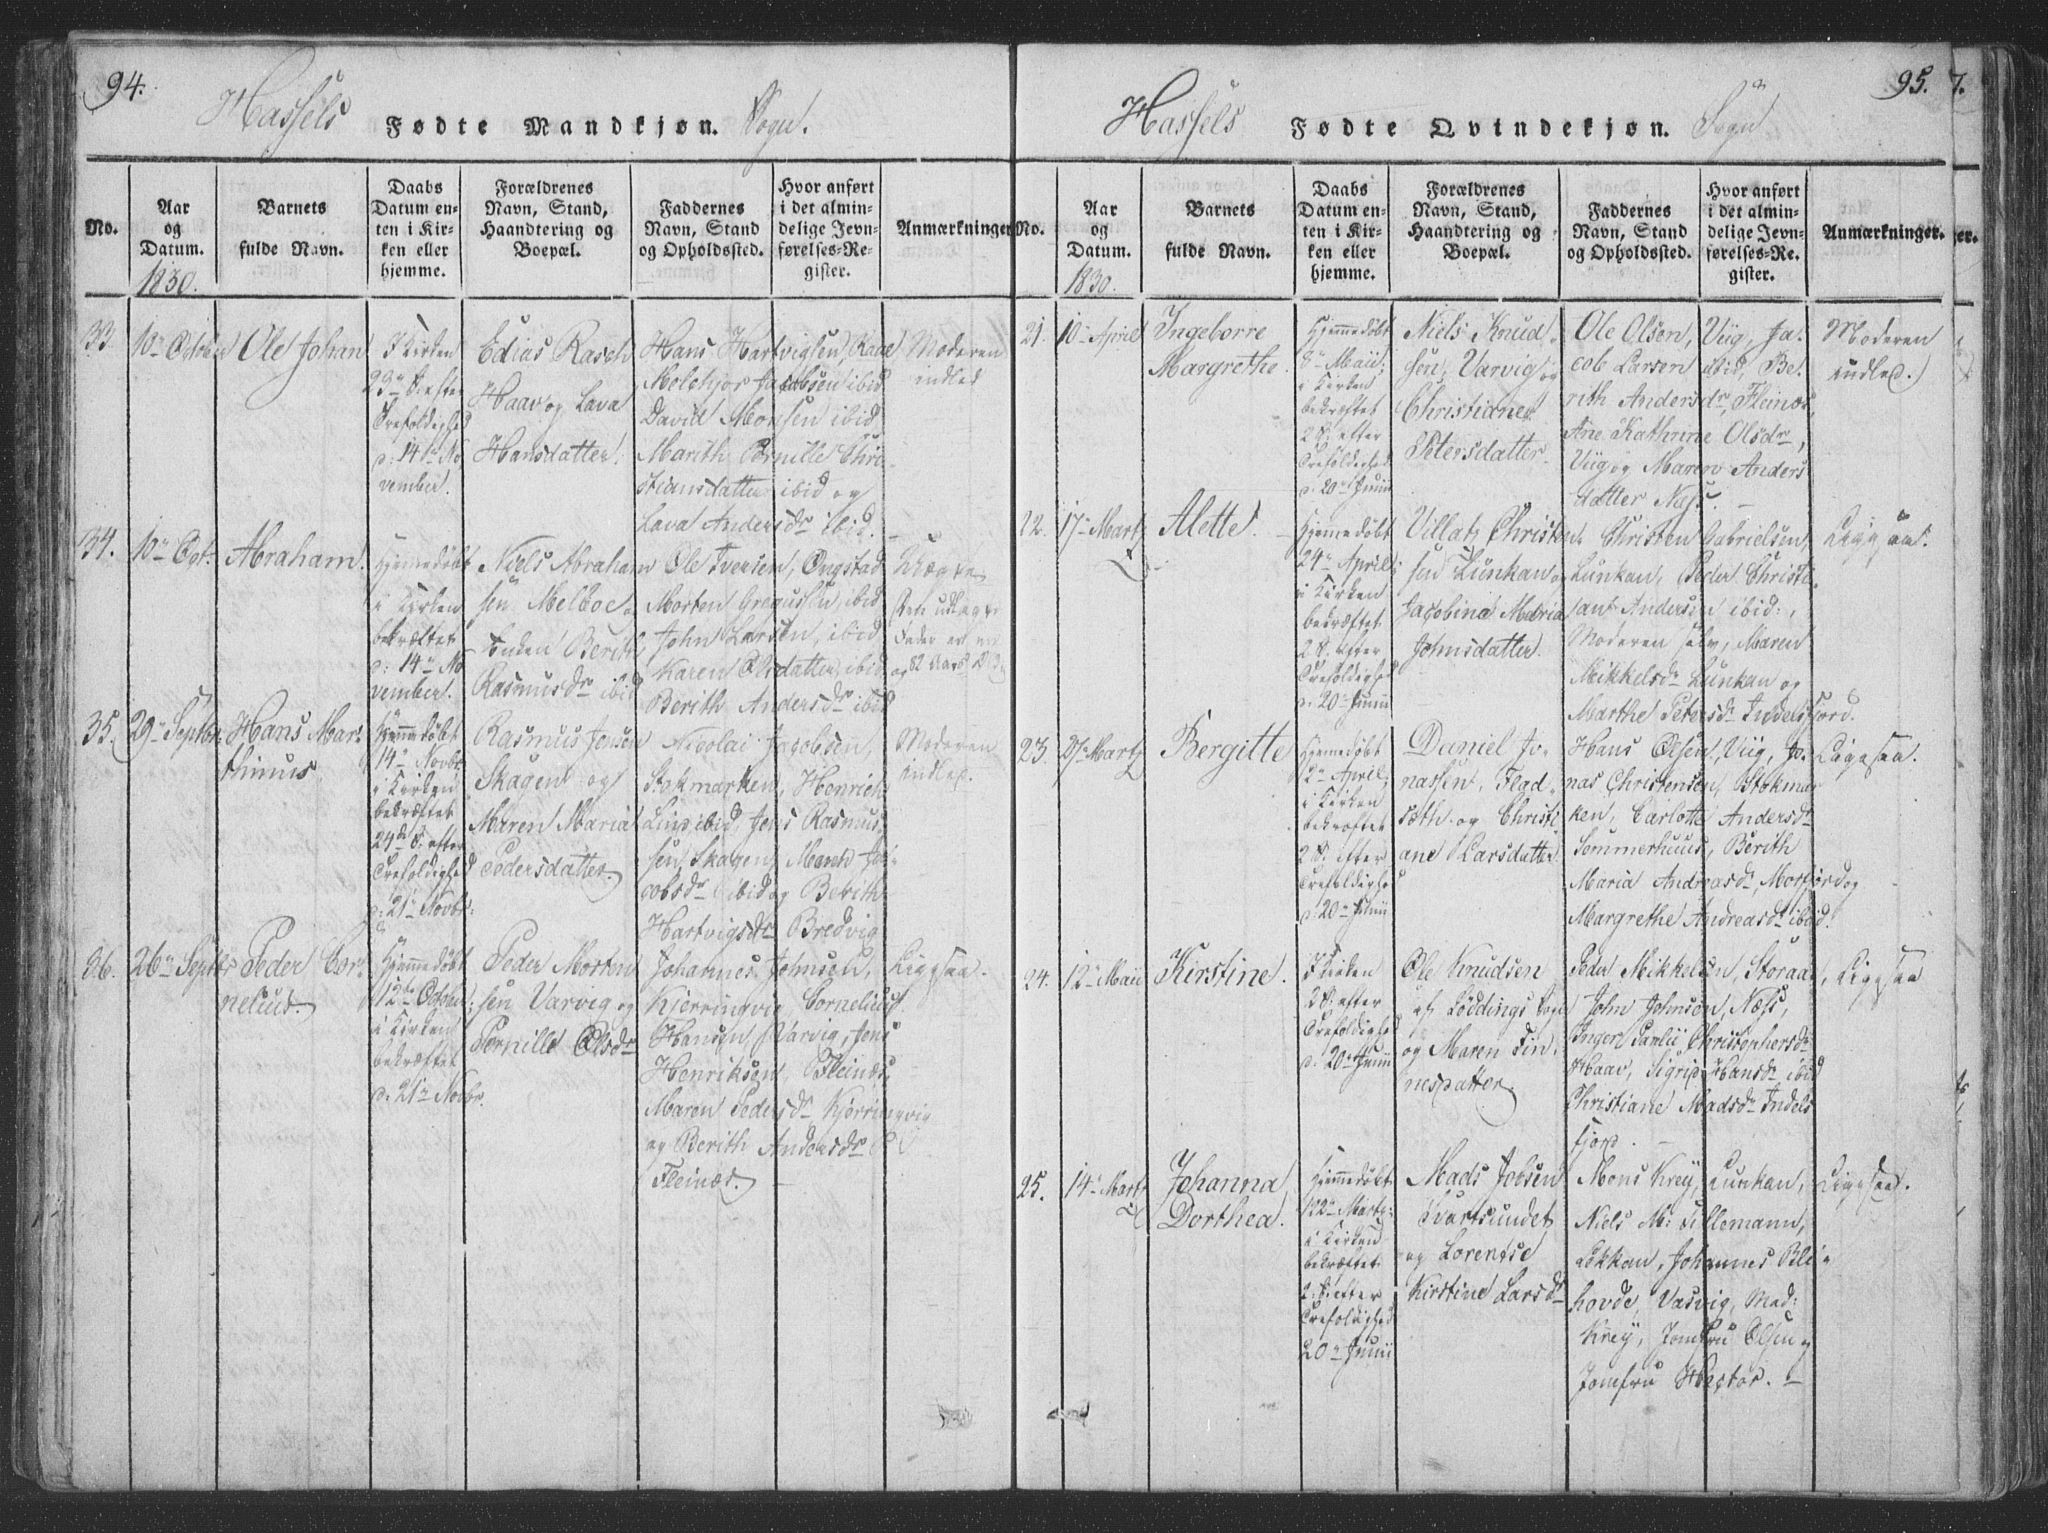 94.
Hassels Fødte Mandkjøn. Sogn.
No.
Aar
og
Datum.
1830.
Barnets
fulde Navn.
Daabs
Datum en-
ten i Kir-
ken eller
hjemme.
Forældrenes
Navn, Stand,
Haandtering og
Boepæl.
Faddernes
Navn, Stand
og Opholdssted.
Hvor anført
i det almin-
delige Jevn-
førelses-Re-
gister.
Anmærkninger
33.
10 Octobr
Ole Johan
I Kirken
23 S. efter
Trefoldighed
d. 14 No
vember.
Edias Rasch
Haav og Lava
Hansdatter.
Hans Hartvigsen
Melchjor Jacobsen ibid
David Monsen ibid
Marith Pernille Chri
stiansdatter ibid og
Lava Andersdr ibid.
Moderen
indled
34.
10 Oct.
Abraham.
Hjemmedøbt
i Kirken
bekræftet
d. 14 No
vember.
Niels Abraham
sen Melboe
Enken Berith
Rasmusdr ibid
Ole Iversen, Ongstad
Morten Gregussen, ibid
John Larsen, ibid
Karen Olsdatter, ibid
Berith Andersdr ibid
35.
29 Septbr.
Hans Mar
thinus
Hjemmedøbt
14 Novbr
i Kirken
bekræftet
24 S. efter
Trefoldighed
d. 21 Novbr.
Rasmus Jensen
Skagen og
Maren Maria
Pedersdatter.
Nicolai Jacobsen,
Stokmarken, Henrich
Lind ibid, Jens Rasmus
sen, Skagen, Maren Ja
cobsdr ibid og Berith
Hartvigsdr Bredvig
Moderen
indled.
36.
26 Septbr
Peder Cor
nelius.
Hjemmedøbt
12te October
i Kirken
bekræftet
d. 21 Novbr.
Peder Morten
sen Varvig og
Pernille Olsdr
Johannes Johnsen,
Kjerringvig Cornelius
Hansen, Varvig, Jens
Henriksen, Fleinæs,
Maren Pedersdr Kjerringvig
og Berith Andersdr
Fleinæs.
Liggsaa.
95.
7.
Hassels Fødte Qvindekjøn. Sogn
No.
Aar
og
Datum.
1830.
Barnets
fulde Navn.
Daabs
Datum en-
ten i Kir-
ken eller
hjemme.
Forældrenes
Navn, Stand,
Haandtering og
Boepæl.
Faddernes
Navn, Stand
og Opholdssted.
Hvor anført
i det almin-
delige Jevn-
førelses-Re-
gister.
Anmærkninger.
21.
10 April
Ingeborre
Margrethe.
Hjemmedøbt
8 Maii;
i Kirken
bekræftet
2 S. efter
Trefoldighed
d. 20 Junii
Niels Knud
sen, Varvig og
Christiane
Petersdatter
Ole Olsen, Viig, Ja
cob Larsen ibid, Be
rith Andersdr, Fleinæs,
Ane Kathrine Olsdr,
Viig og Maren Anders
datter Næss.
Moderen
indled.
22.
17 Marts
Alette.
Hjemmedøbt
24 April;
i Kirken
bekræftet
2 S. efter
Trefoldighed
d. 20 Junii
Villats Christen
sen Lunkan og
Jacobina Maria
Johnsdatter.
Christen Gabrielsen,
Lunkan, Peder Christi
Andersen ibid:,
Moderen selv, Maren
Mikkelsdr Lunkan og
Marthe Petersdr Indelsfjord.
Liggsaa.
23.
27 Marts
Bergitte
Hjemmedøbt
12 April;
i Kirken
bekræftet
2 S. efter
Trefoldighed
d. 20 Junii
Daniel Jo
nassen, Flad
sæth og Christi
ane Larsdatter
Hans Olsen, Viig, Jo
nas Christensen, Stokmar
ken, Carlotte Andersdr
Sommerhuus, Berith
Maria Andreasdr, Morfjord og
Margrethe Andreasdr ibid.
Liggsaa.
24.
12 Maii
Kirstine.
I Kirken
2 S. efter
Trefoldighed
d. 20 Junii
Ole Knudsen
af Løddings Sogn
og Maren Fin
nesdatter.
Peder Mikkelsen, Storaa,
John Johnsen, Næss,
Inger Christophersdr
Haav, Sigrid Hansdr ibid
Christiane Madsdr Indels
fjord.
Liggsaa
25.
14 Marts
Johanna
Dorthea.
Hjemmedøbt
22 Marts;
i Kirken
bekræftet
2. S. efter
Trefoldighed
20 Junii
Mads Jobsen
Svartsundet
og Lorentse
Kirstine Larsdr
Mons Krey, Lunkan,
Niels M: Tillemann,
Løkkan, Johannes Bli
hovde, Vasvig, Mad:
Krey, Jomfru Olsen og
Jomfru Hector.
Liggsaa.